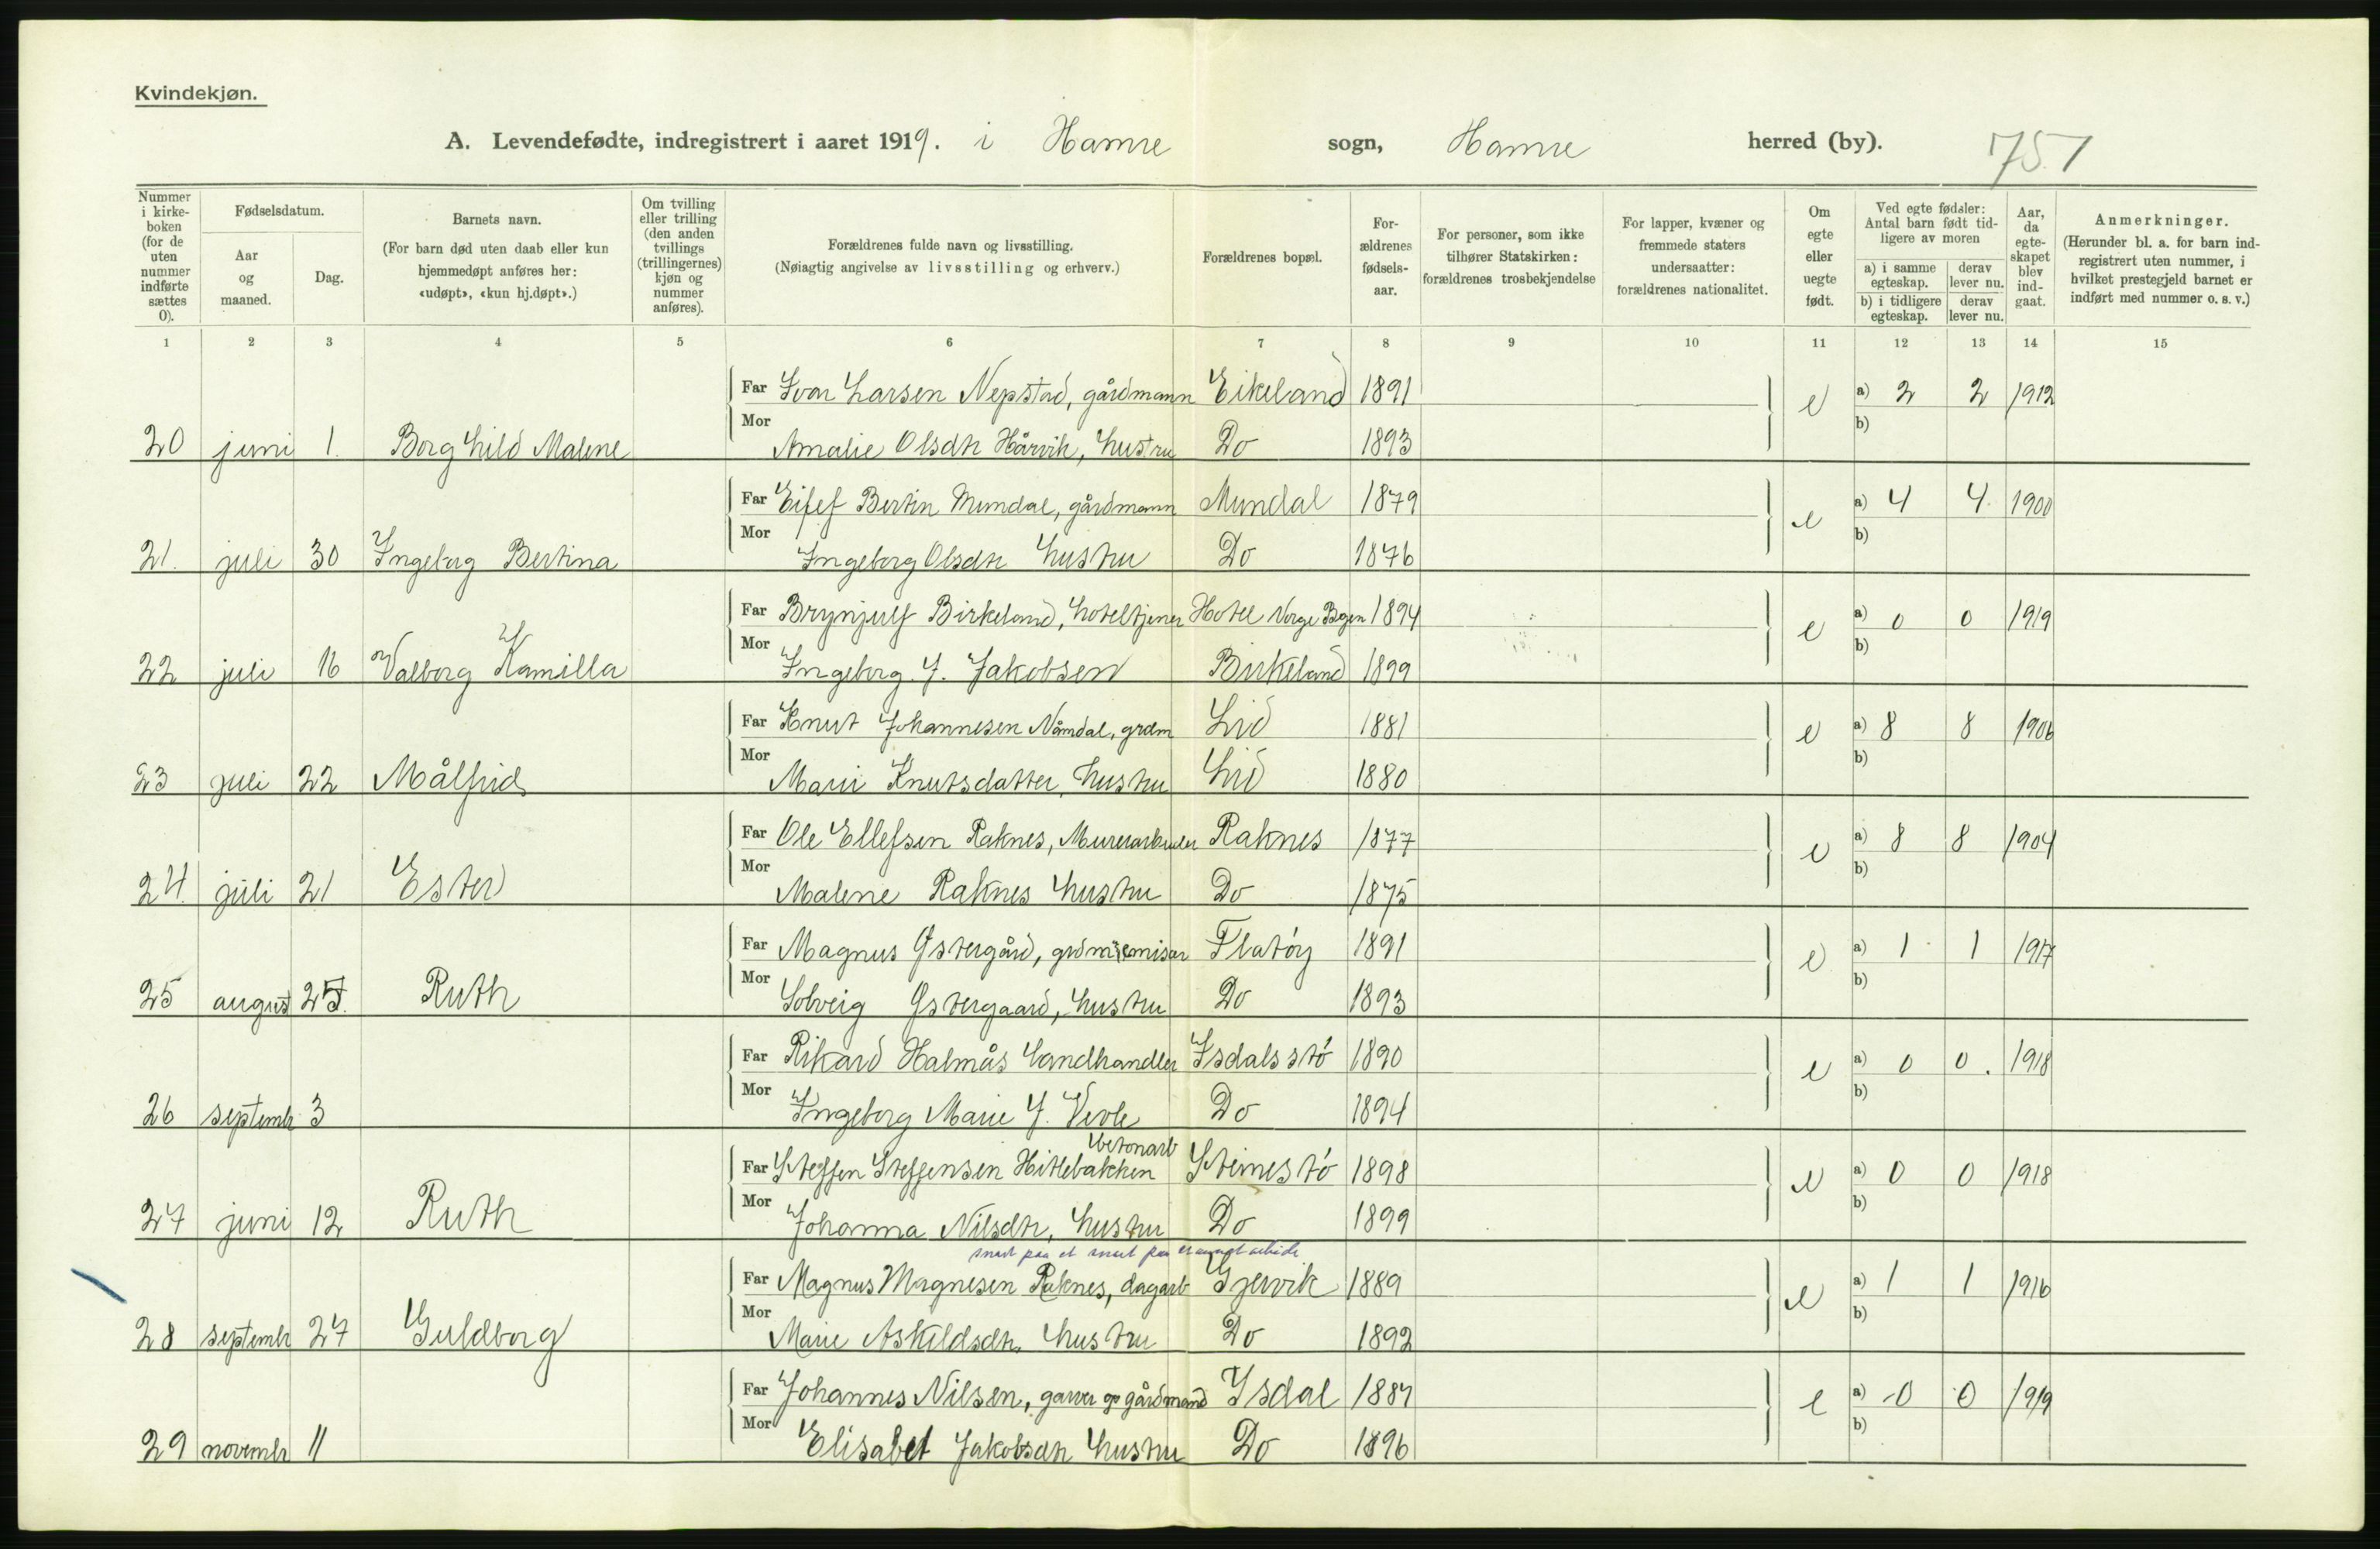 Kvindekjøn.
A. Levendefødte, indregistrert i aaret 1919. i Hamre sogn, Hamre herred (by). 757
Nummer i kirke-boken (for de uten nummer indførte sættes 0).
Fødselsdatum.
Aar og maaned.
Dag.
Barnets navn.
(For barn død uten daab eller kun hjemmedøpt anføres her: «udøpt», «kun hj.døpt».)
Om tvilling eller trilling (den anden tvillings (trillingernes) kjøn og nummer anføres).
Forældrenes fulde navn og livsstilling.
(Nøiagtig angivelse av livsstilling og erhverv.)
Forældrenes bopæl.
For-ældrenes fødsels-aar.
For personer, som ikke tilhører Statskirken: forældrenes trosbekjendelse
For lapper, kvæner og fremmede staters undersaatter: forældrenes nationalitet.
Om egte eller uegte født.
Ved egte fødsler: Antal barn født tid-ligere av moren
a) i samme egteskap. derav lever nu.
b) i tidligere egteskap. derav lever nu.
Aar, da egte-skapet blev ind-gaat.
Anmerkninger.
(Herunder bl. a. for barn ind-registrert uten nummer, i hvilket prestegjeld barnet er indført med nummer o. s. v.)
1 2 3 4 5 6 7 8 9 10 11 12 13 14 15
Far Ivar Larsen Nepstad, gårdmann Eikeland 1891 e a) 2 2 1912
20 juni 1. Borghild Malene Mor Amalie Olsdtr Hårvik, hustru Do 1893 b)
Far Eilef Bertin Mundal, gårdmann Mundal 1879 e a) 4 4 1900
21. juli 30 Ingeborg Bertina Mor Ingeborg Olsdtr hustru Do 1876 b)
Far Brynjulf Birkeland, hoteltjener Hotel Norge Bgen 1894 e a) 0 0 1919
22 juli 16 Valborg Kamilla Mor Ingeborg J. Jakobsen Birkeland 1899 b)
Far Knut Johannesen Nåmdal, grdm Lid 1881 e a) 8 8 1906
23 juli 22 Målfrid Mor Mari Knutsdatter, hustru Lid 1880 b)
Far Ole Ellefsen Raknes, Murerarbeider Raknes 1877 e a) 8 8 1904
24. juli 21 Ester Mor Malene Raknes hustru Do 1875 b)
Far Magnus Østergård, grdm emisær Flatøy 1891 e a) 1 1 1917
25 august 25. Ruth Mor Solveig Østergaard, hustru Do 1893 b)
Far Rikard Halmås landhandler Isdalsstø 1890 e a) 0 0. 1918
26 septembr 3 Mor Ingeborg Marie J. Do 1894 b)
betonarb
Far Steffen Steffensen Hitlebakken Steinestø 1898 e a) 0 0 1918
27 juni 12 Ruth Mor Johanna Nilsdtr, hustru Do 1899 b)
snart paa et snart paa et annet arbeide
Far Magnus Magnesen Raknes, dagarb Gjervik 1889 e a) 1 1 1916
28 septembr 27 Guldborg Mor Marie Askildsdtr, hustru Do 1892 b)
Far Johannes Nilsen, garver og gårdmand Isdal 1887 e a) 0 0 1919
29 novembr 11 Mor Elisabet Jakobsdtr hustru Do 1896 b)